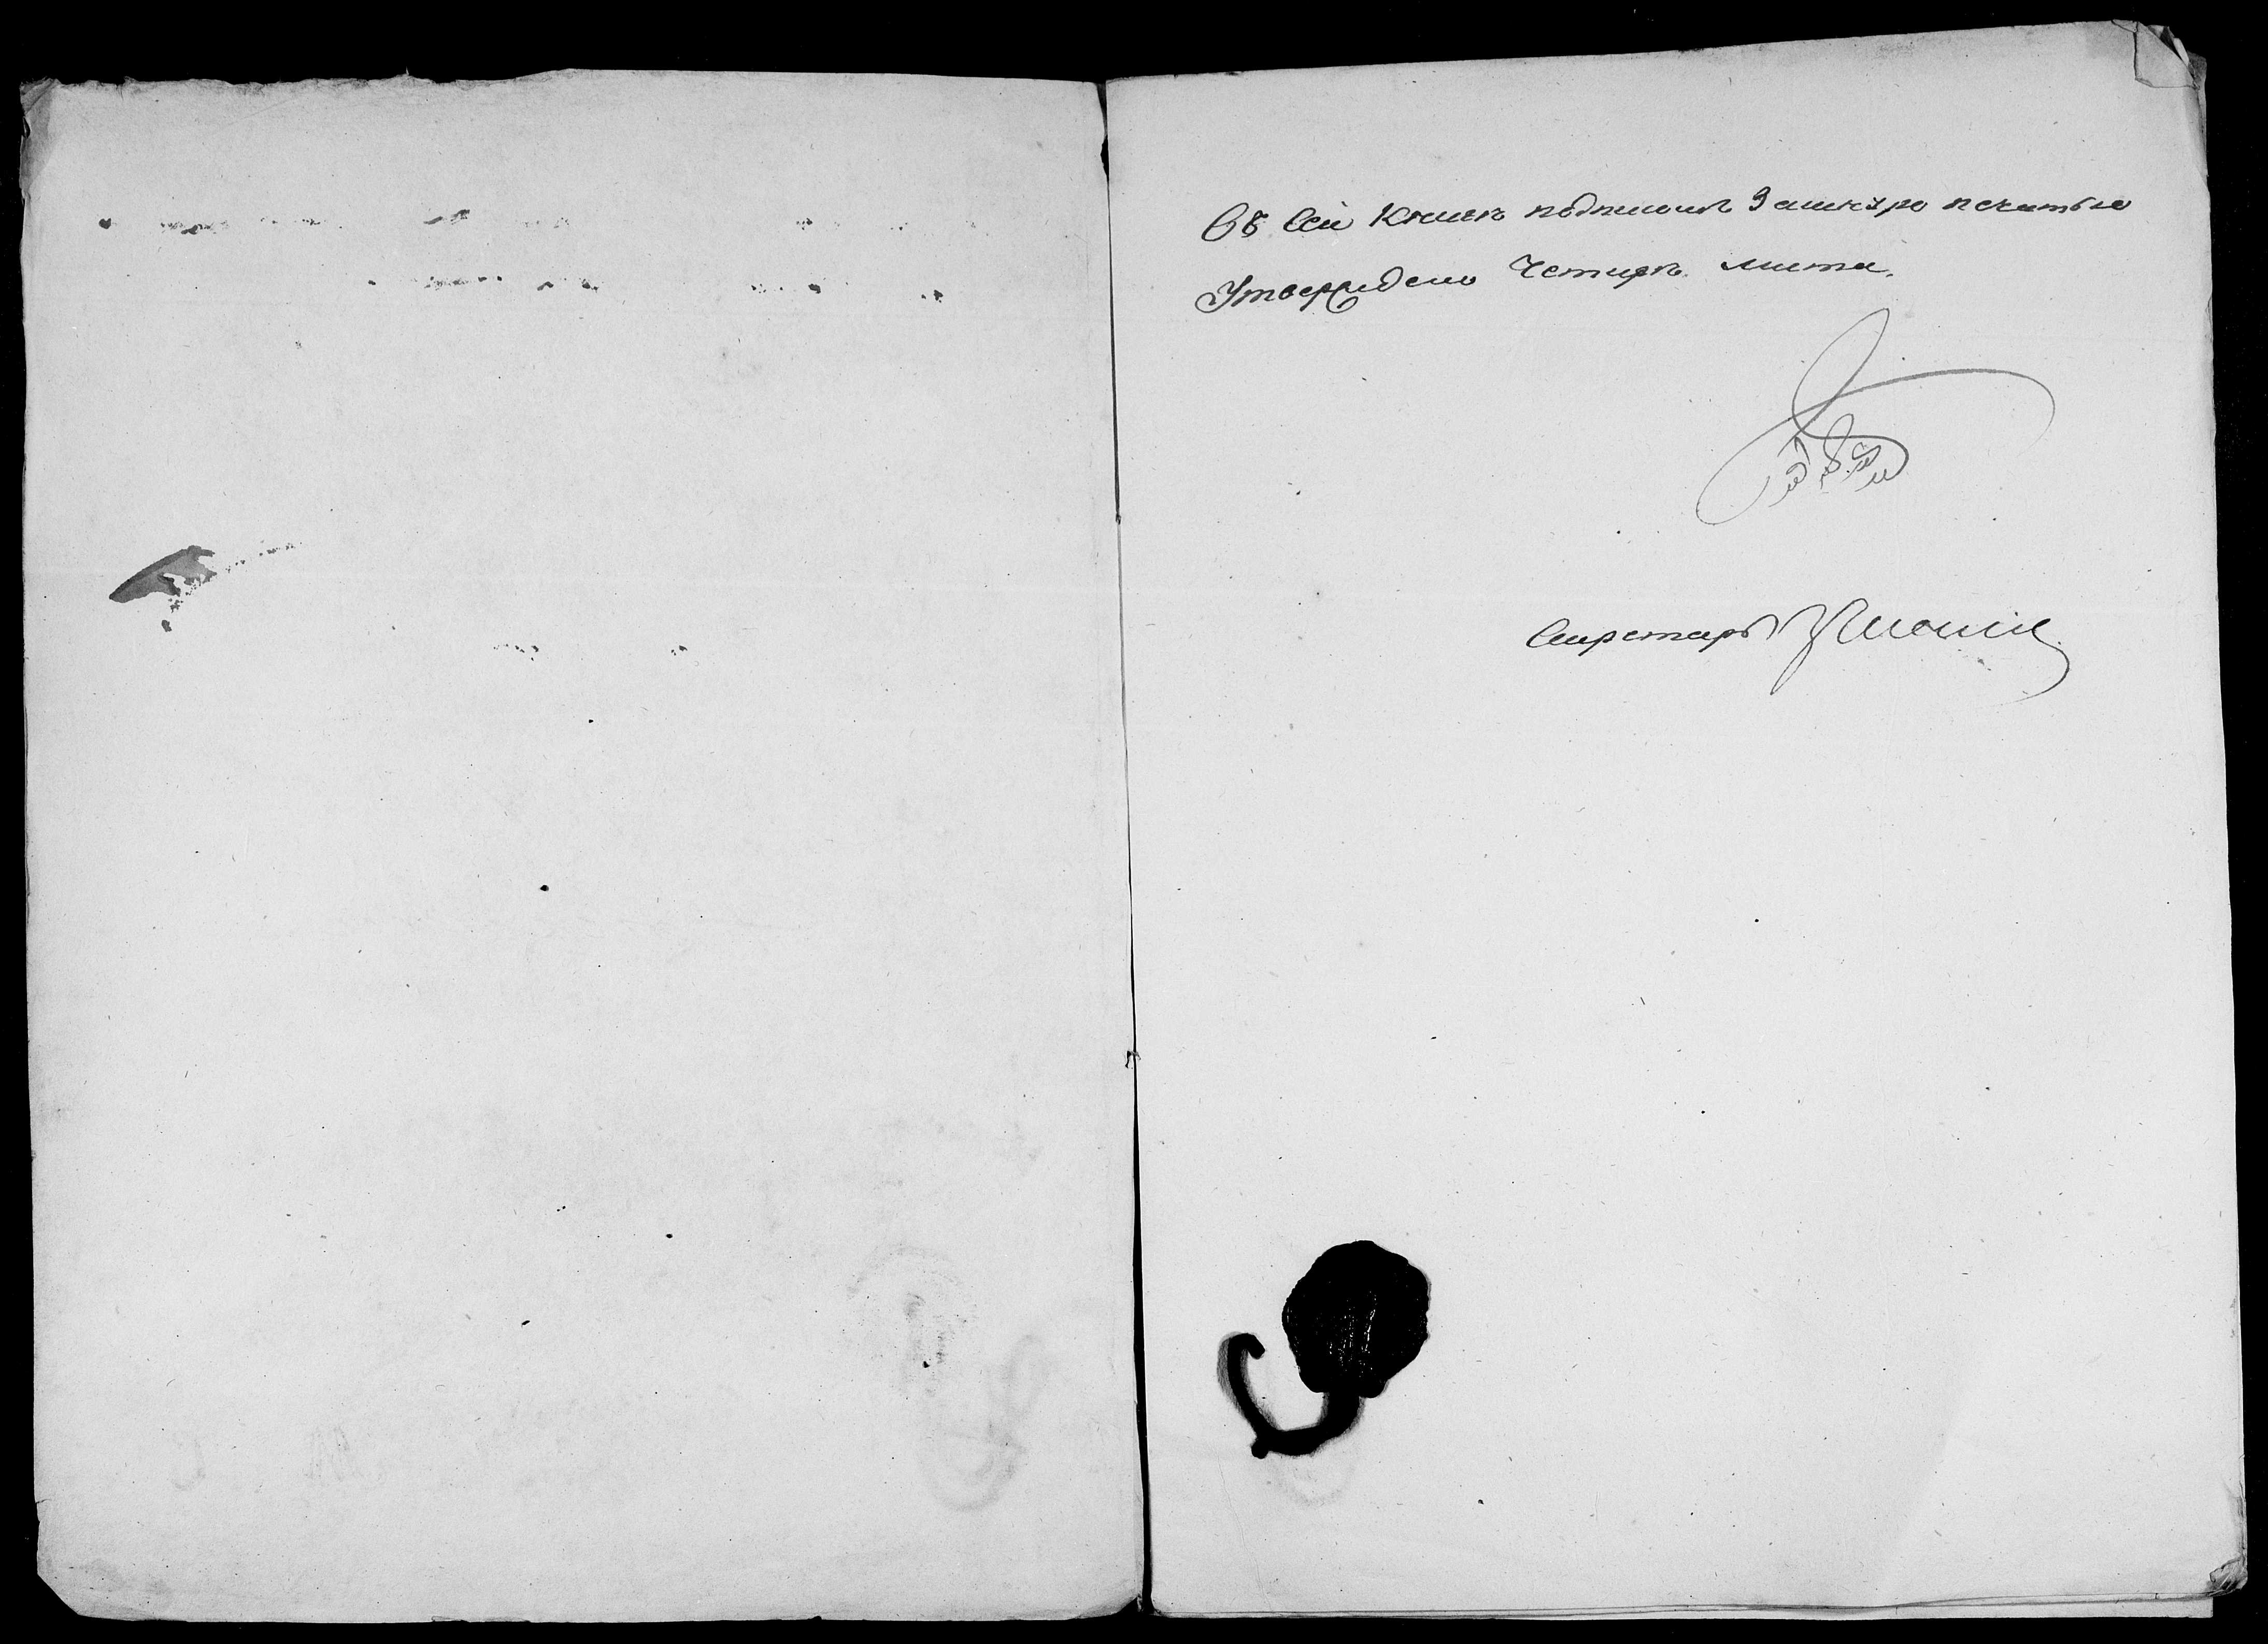 Въ сей книгѣ подписомъ за шнуро печатью
Утверждено Четире листа.
Секретарь